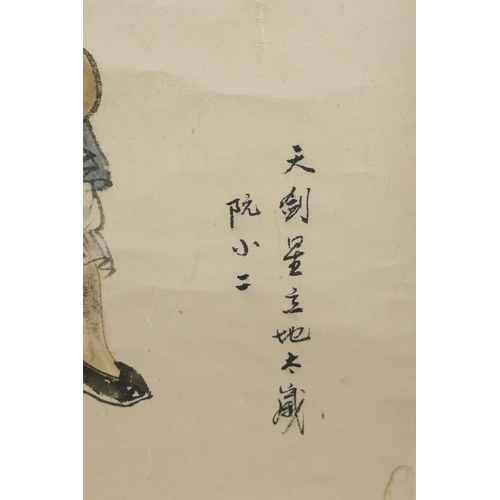 天劍星立地太歲
阮小二